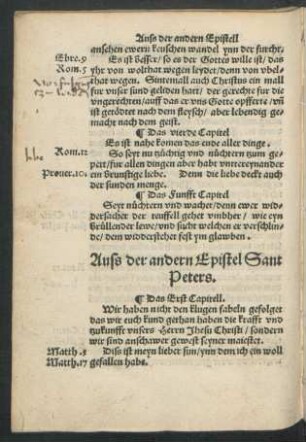 Auß der andern Epistell
ansehen ewern keuschen wandel ynn der furcht.
Ebre.9 Es ist besser/ so es der Gottes wille ist/ das
Rom.5 yhr von wolthat wegen leyder/ denn von vbel-
that wegen. Sintemall auch Christus ein mall
fur vnser sund geliden hatt/ der gerechte fur die
vngerechten/ auff das er vns Gotte opfferte/ vnd
ist getödtet nach dem fleysch/ aber lebendig ge-
macht nach dem geist.
¶ Das vierde Capitel
Es ist nahe komen das ende aller dinge.
Rom.12 So seyt nu nüchtig vnd nüchtern zum ge-
pett/ fur allen dingen aber habt vntereynander
Prouer.10. ein brunstige liebe. Denn die liebe deckt auch
der sunden menge.
¶ Das Funfft Capitel
Seyt nüchtern vnd wachet/ denn ewer wid-
dersacher der teuffell gehet vmbher/ wie eyn
brüllender lewe/ vnd sucht welchen er verschlin-
de/ dem widderstehet fest ynn glawben.
Auß der andern Epistel Sant
Peters.
¶ Das Erst Capitell.
Wir haben nicht den klugen fabeln gefolget
das wir euch kund gethan haben die krafft vnd
zukunfft vnsers Herrn Jhesu Christi/ sondern
wir sind anschawer gewest seyner maiestet.
Matth.3 Diß ist meyn lieber sun/ ynn dem ich ein woll
Matth.17 gefallen habe.